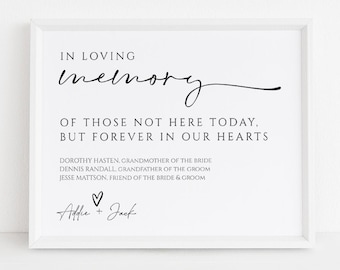 IN LOVING
memory
OF THOSE NOT HERE TODAY,
BUT FOREVER IN OUR HEARTS
DOROTHY HASTEN, GRANDMOTHER OF THE BRIDE
DENNIS RANDALL, GRANDFATHER OF THE GROOM
JESSE MATTSON, FRIEND OF THE BRIDE & GROOM
Addie + Jack